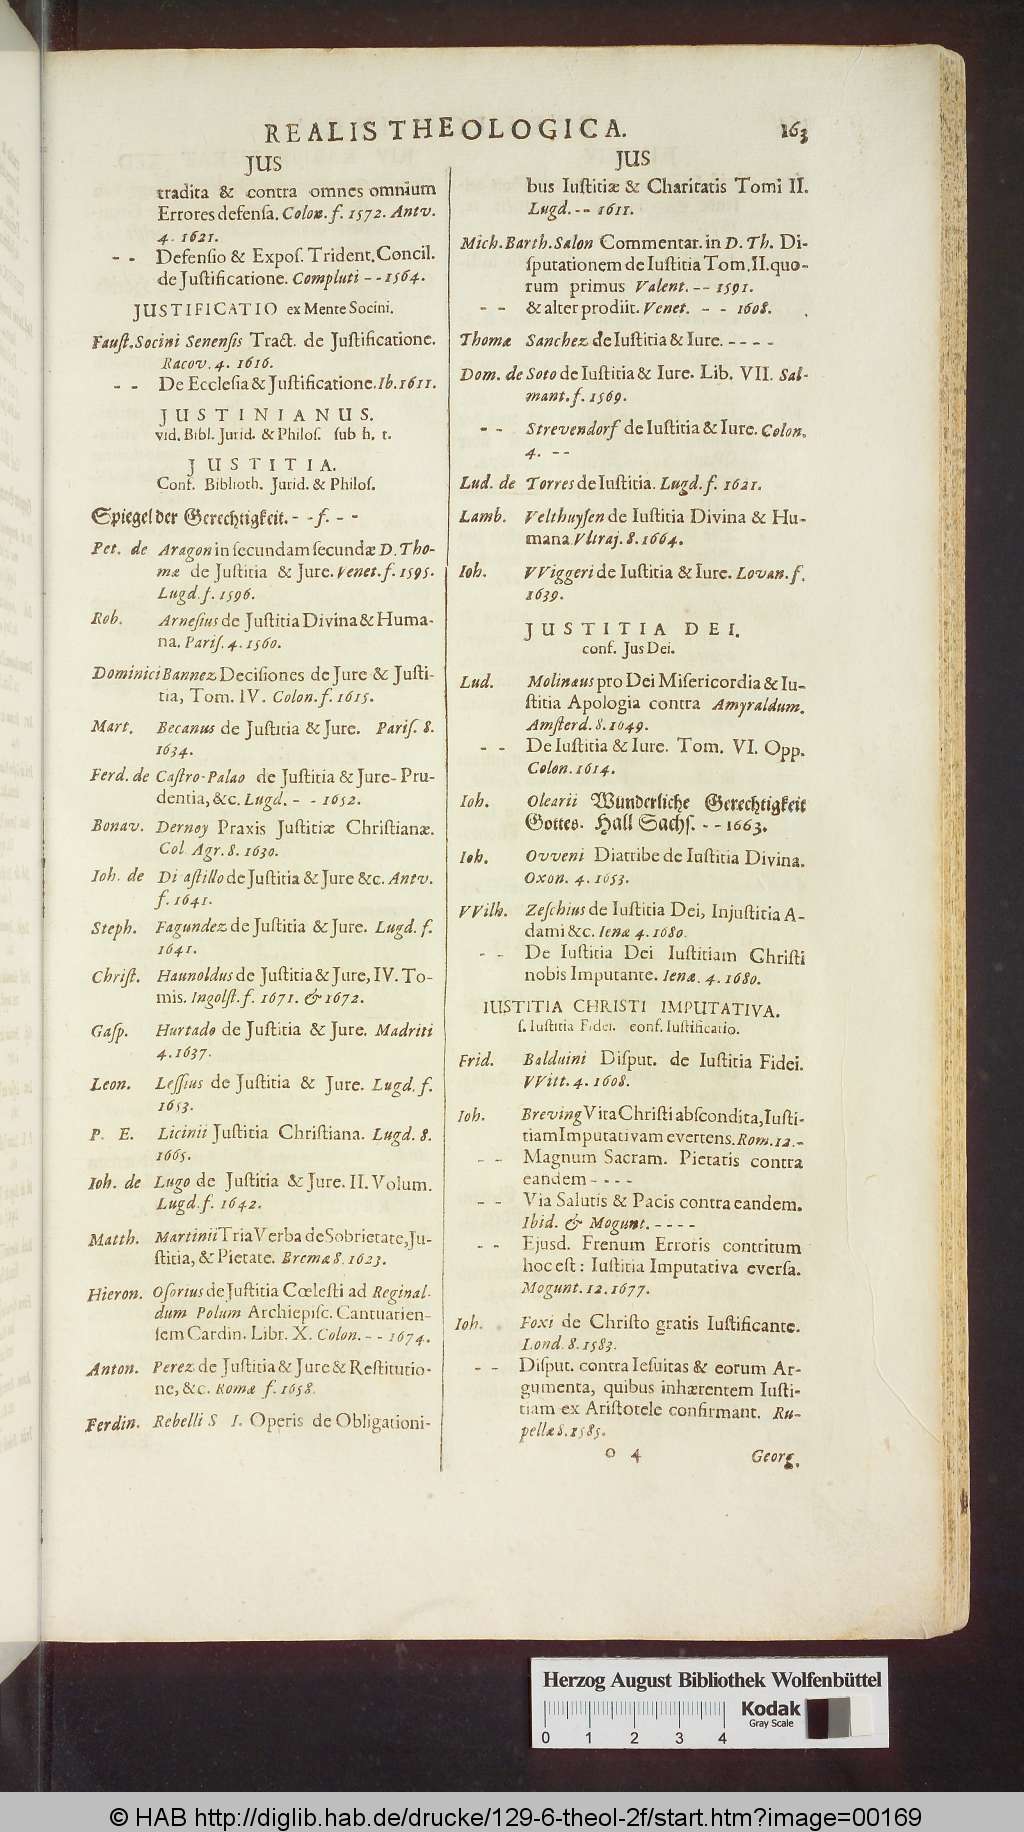 REALIS THEOLOGICA. 163
JUS
tradita & contra omnes omnium
Errores defensa. Colon. f. 1572. Antv.
4. 1621.
- - Defensio & Expos. Trident. Concil.
de Justificatione. Compluti - - 1564.
JUSTIFICATIO ex Mente Socini.
Faust. Socini Senensis Tract. de Justificatione.
Racov. 4. 1616.
- - De Ecclesia & Justificatione. Ib. 1611.
JUSTINIANUS.
vid. Bibl. Jurid. & Philos. sub h. t.
JUSTITIA.
Conf. Biblioth. Jurid. & Philos.
Spiegel der Gerechtigkeit. - - f. - -
Pet. de Aragon in secundam secundæ D. Tho-
mæ de Justitia & Jure. Venet. f. 1595.
Lugd. f. 1596.
Rob. Arnesius de Justitia Divina & Huma-
na. Paris. 4. 1560.
Dominici Bannez Decisiones de Jure & Justi-
tia, Tom. IV. Colon. f. 1615.
Mart. Becanus de Justitia & Jure. Paris. 8.
1634.
Ferd. de Castro-Palao de Justitia & Jure-Pru-
dentia, &c. Lugd. - - 1652.
Bonav. Dernoy Praxis Justitiæ Christianæ.
Col. Agr. 8. 1630.
Ioh. de Di astillo de Justitia & Jure &c. Antv.
f. 1641.
Steph. Fagundez de Justitia & Jure. Lugd. f.
1641.
Christ. Haunoldus de Justitia & Jure, IV. To-
mis. Ingolst. f. 1671. & 1672.
Gasp. Hurtado de Justitia & Jure. Madriti
4. 1637.
Leon. Lessius de Justitia & Jure. Lugd. f.
1653.
P. E. Licinii Justitia Christiana. Lugd. 8.
1665.
Ioh. de Lugo de Justitia & Jure. II. Volum.
Lugd. f. 1642.
Matth. Martinii Tria Verba de Sobrietate, Ju-
stitia, & Pietate. Bremæ 8. 1623.
Hieron. Osorius de Justitia Cœlesti ad Reginal-
dum Polum Archiepisc. Cantuarien-
sem Cardin. Libr. X. Colon. - - 1674.
Anton. Perez de Justitia & Jure & Restitutio-
ne, &c. Romæ f. 1658.
Ferdin. Rebelli S I. Operis de Obligationi-
JUS
bus Iustitiæ & Charitatis Tomi II.
Lugd. - - 1611.
Mich. Barth. Salon Commentar. in D. Th. Di-
sputationem de Iustitia Tom. II. quo-
rum primus Valent. - - 1591.
- - & alter prodiit. Venet. - - 1608.
Thomæ Sanchez de Iustitia & Iure. - - - -
Dom. de Soto de Iustitia & Iure. Lib. VII. Sal-
mant. f. 1569.
- - Strevendorf de Iustitia & Iure. Colon.
4. - -
Lud. de Torres de Iustitia. Lugd. f. 1621.
Lamb. Velthuysen de Iustitia Divina & Hu-
mana Vltraj. 8. 1664.
Ioh. VViggeri de Iustitia & Iure. Lovan. f.
1639.
JUSTITIA DEI.
conf. Jus Dei.
Lud. Molinæus pro Dei Misericordia & Iu-
stitia Apologia contra Amyraldum.
Amsterd. 8. 1649.
- - De Iustitia & Iure. Tom. VI. Opp.
Colon. 1614.
Ioh. Olearii Wunderliche Gerechtigkeit
Gottes. Hall Sachs. - - 1663.
Ioh. Ovveni Diatribe de Iustitia Divina.
Oxon. 4. 1653.
VVilh. Zeschius de Iustitia Dei, Injustitia A-
dami &c. Ienæ 4. 1680.
- - De Iustitia Dei Iustitiam Christi
nobis Imputante. Ienæ. 4. 1680.
IUSTITIA CHRISTI IMPUTATIVA.
s. Iustitia Fidei. conf. Iustificatio.
Frid. Balduini Disput. de Iustitia Fidei.
VVitt. 4. 1608.
Ioh. Breving Vita Christi abscondita, Iusti-
tiam Imputativam evertens. Rom. 12. -
- - Magnum Sacram. Pietatis contra
eandem - - - -
- - Via Salutis & Pacis contra eandem.
Ibid. & Mogunt. - - - -
- - Ejusd. Frenum Erroris contritum
hoc est: Iustitia Imputativa eversa.
Mogunt. 12. 1677.
Ioh. Foxi de Christo gratis Iustificante.
Lond. 8. 1583.
- - Disput. contra Iesuitas & eorum Ar-
gumenta, quibus inhærentem Iusti-
tiam ex Aristotele confirmant. Ru-
pellæ 8. 1585.
O 4 Georg.
Herzog August Bibliothek Wolfenbüttel
Kodak
Gray Scale
0 1 2 3 4
© HAB http://diglib.hab.de/drucke/129-6-theol-2f/start.htm?image=00169